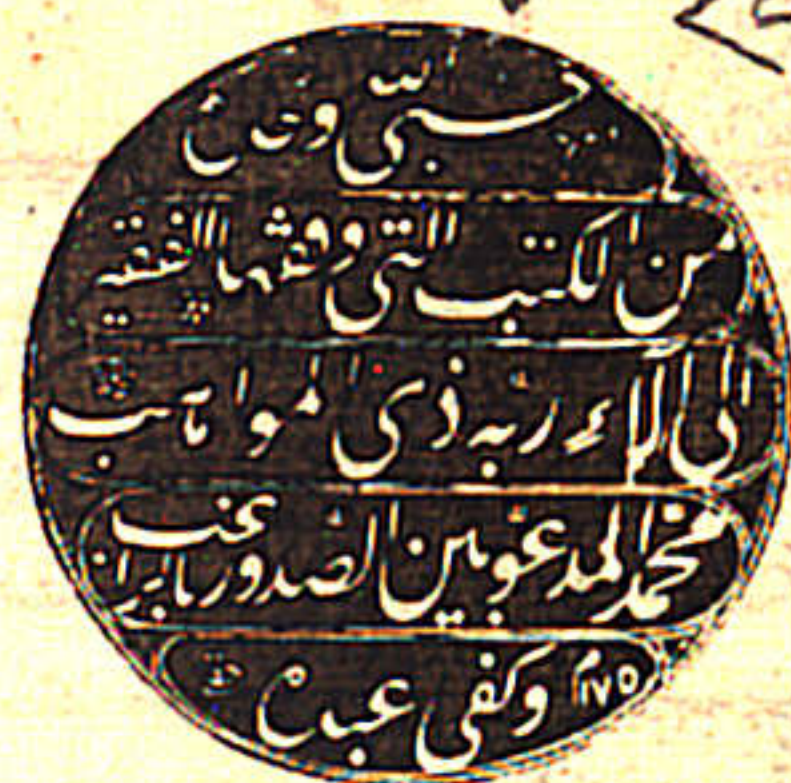 حسبي الله وحده
من الكتب التي وقفها الفقير
الى آلاء ربه ذى المواهب
محمد المدعو بين الصدور بالراغب
وكفى عبده